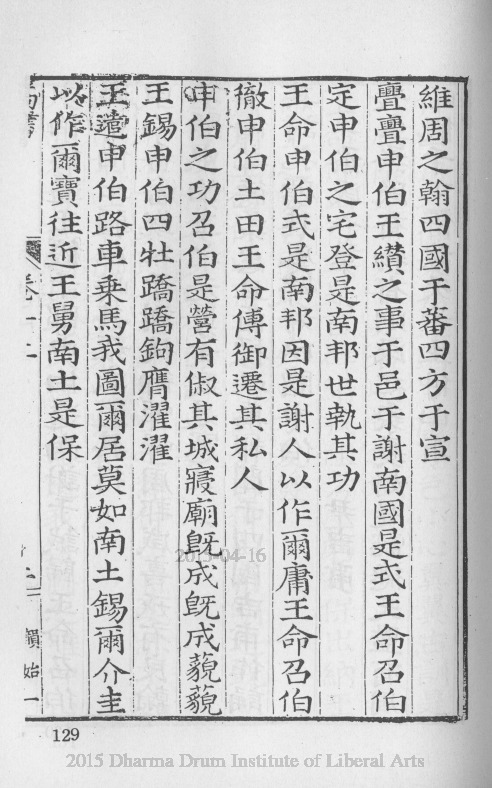 維周之翰四國于蕃四方于宣
亹亹申伯王纘之事于邑于謝南國是式王命召伯
定申伯之宅登是南邦世執其功
王命申伯式是南邦因是謝人以作爾庸王命召伯
徹申伯土田王命傅御遷其私人
申伯之功召伯是營有俶其城寢廟既成既成藐藐
王錫申伯四牡蹻蹻鉤膺濯濯
王遣申伯路車乗馬我圖爾居莫如南土錫爾介圭
以作爾寶往近王舅南土是保
卷十二
韻始一
2015-04-16
129
2015 Dharma Drum Institute of Liberal Arts